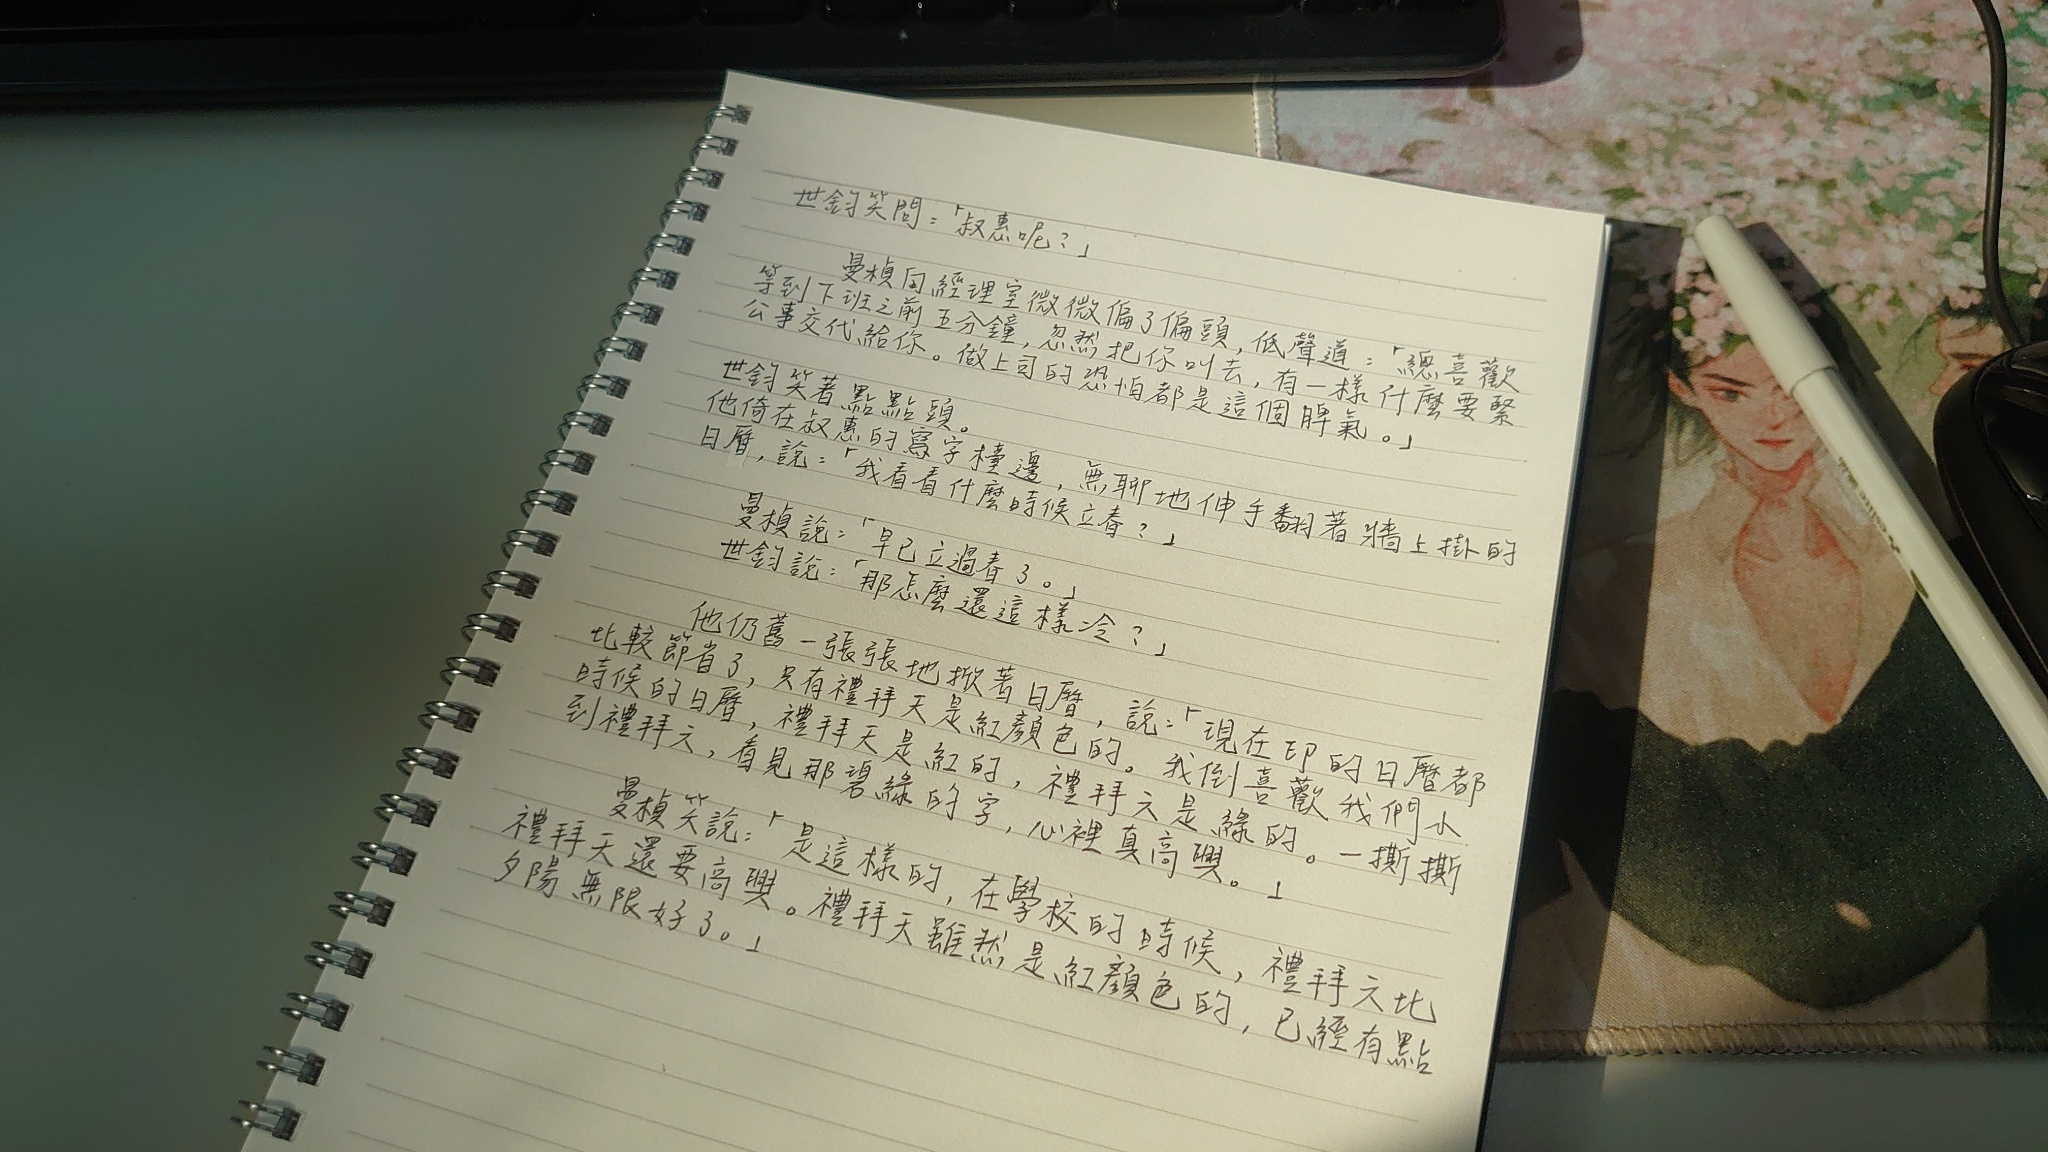 世鈞笑問：「叔惠呢？」
曼楨向經理室微微偏了偏頭，低聲道：「總喜歡
等到下班之前五分鐘，忽然把你叫去，有一樣什麼要緊
公事交代給你。做上司的恐怕都是這個脾氣。」
世鈞笑著點點頭。
他倚在叔惠的寫字檯邊，無聊地伸手翻著牆上掛的
日曆，說：「我看看什麼時候立春？」
曼楨說：「早已立過春了。」
世鈞說：「那怎麼還這樣冷？」
他仍舊一張張地掀著日曆，說：「現在印的日曆都
比較節省了，只有禮拜天是紅顏色的。我倒喜歡我們小
時候的日曆，禮拜天是紅的，禮拜六是綠的。一撕撕
到禮拜六，看見那碧綠的字，心裡真高興。」
曼楨笑說：「是這樣的，在學校的時候，禮拜六比
禮拜天還要高興。禮拜天雖然是紅顏色的，已經有點
夕陽無限好了。」